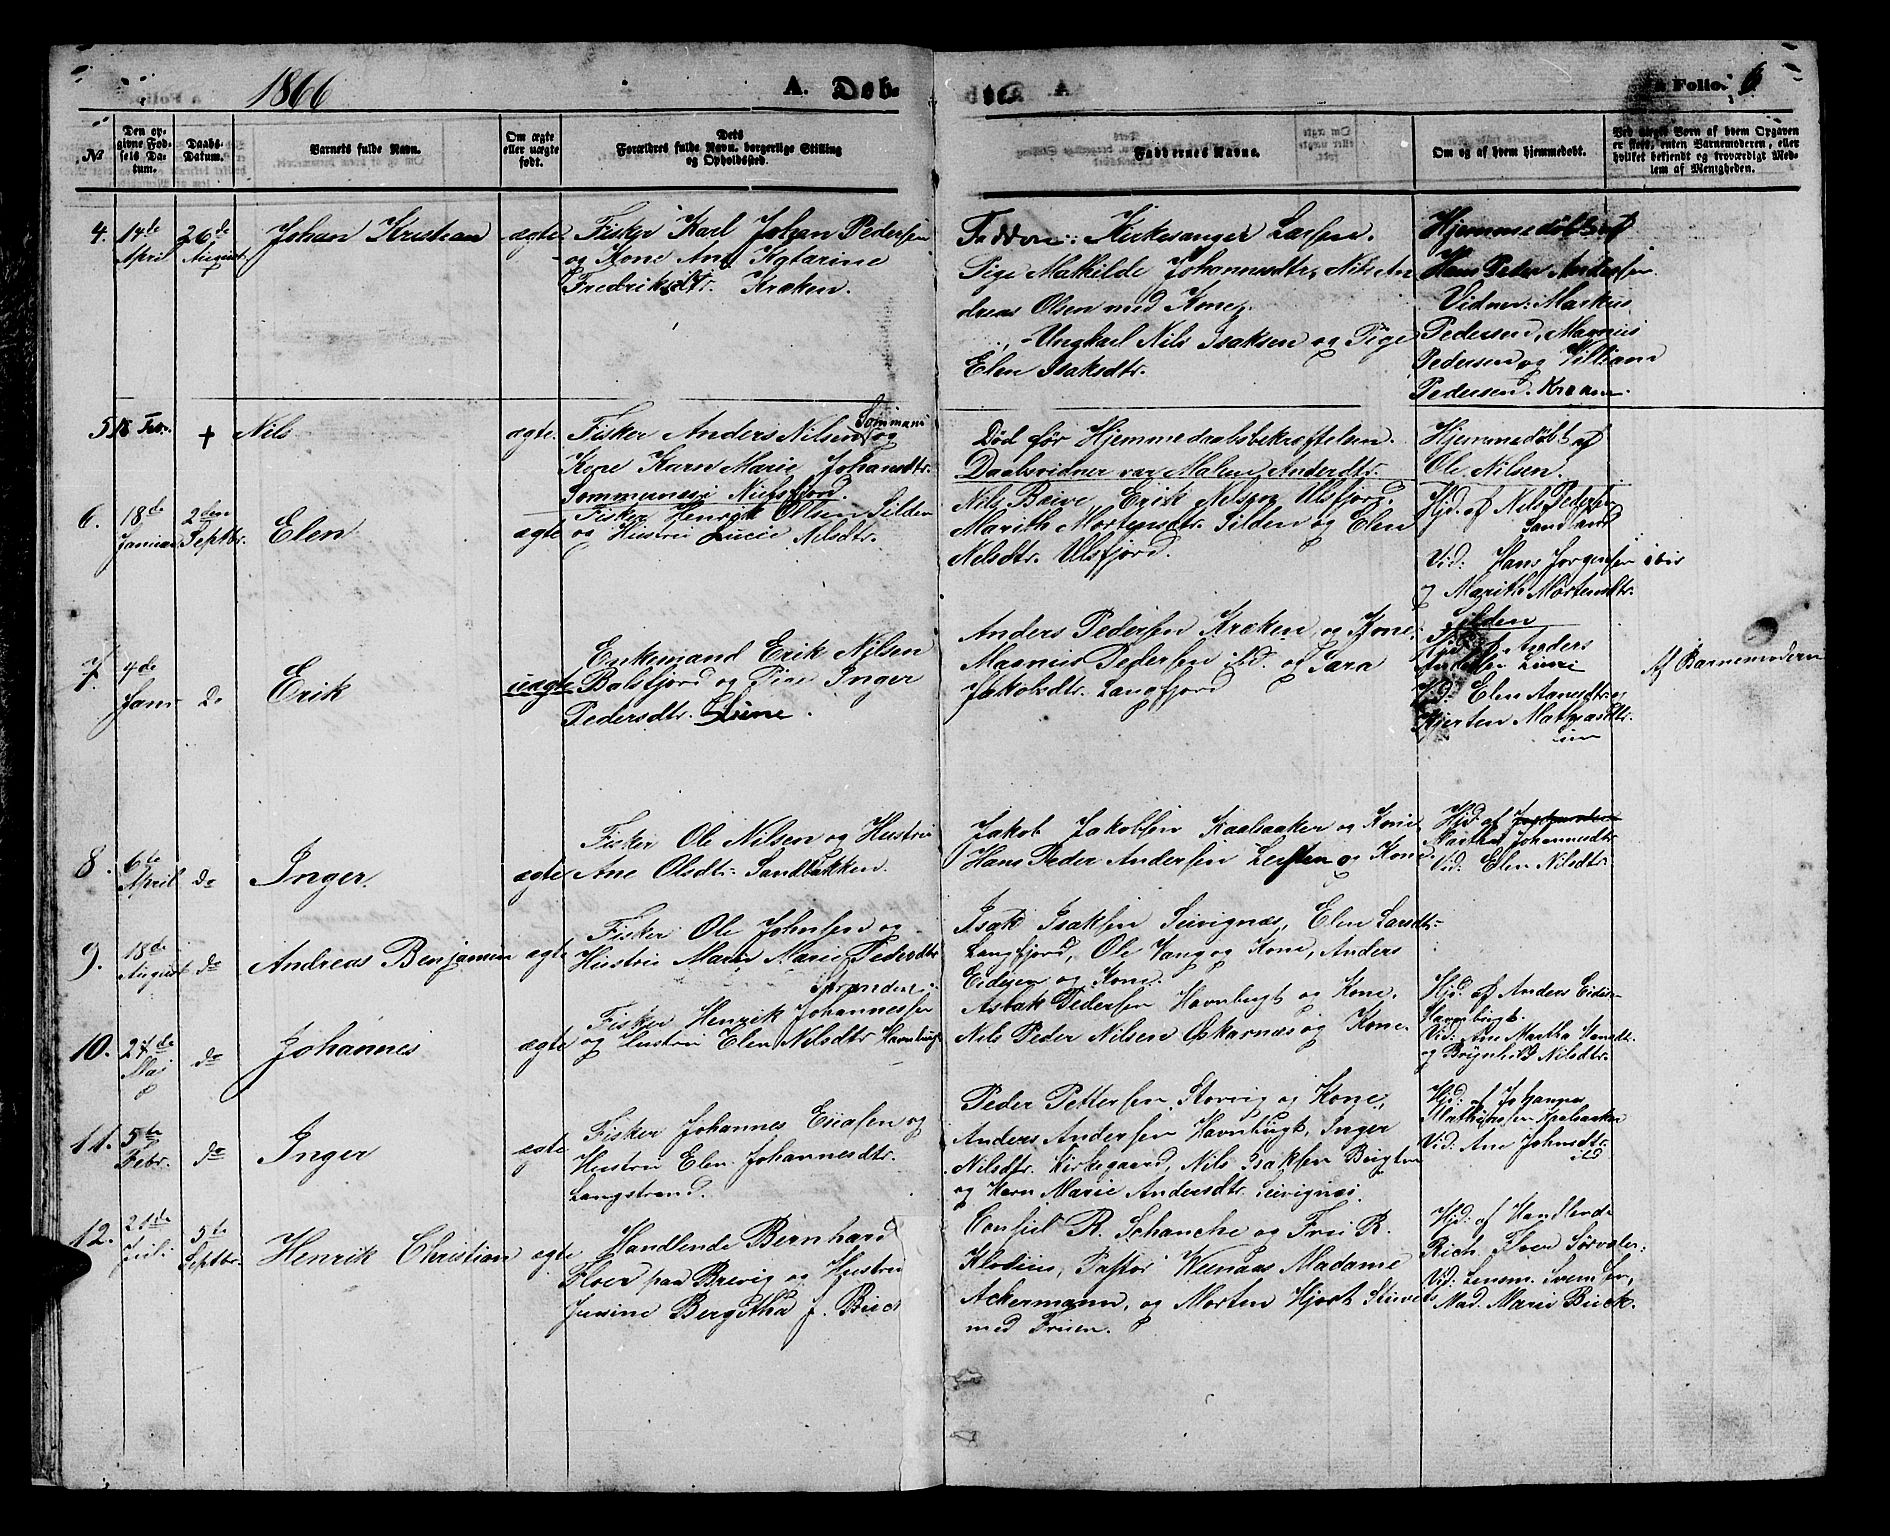 1866 A. Døb- A Folio. 6
№
Den opgivne Fødsels Datum.
Daabs-Datum.
Barnets fulde Navn.
Om ægte eller uægte født.
Dets Forældres fulde Navn, borgerlige Stilling og Opholdssted.
Faddernes Navne.
Om og af hvem hjemmedøbt.
Ved uægte Børn af hvem Opgaven er skeet, enten Barnemoderen, eller hvilket bekjendt og troværdigt Medlem af Menigheden.
4. 14de April 26de August Johan Kristian ægte
Fisker Karl Johan Pedersen
og Kone Ane Katarine
Fredriksdtr. Kræken.
Faddere: Kirkesanger Larsen.
Pige Mathilde Johannesdtr, Nils An
dreas Olsen med Kone,
Ungkarl Nils Isaksen og Pige
Elen Isaksdtr.
Hjemmedøbt af
Hans Peder Andersen.
Vidner: Markus
Pedersen, Magnus
Pedersen og Killiam
Pedersen Kræken.
5. 18 Febr. + Nils ægte.
Fisker Anders Nilsen og
Kone Karn Marie Johansdtr.
Sommernes i Nufsfjord.
Død før Hjemmedaabsbekræftelsen.
Daabsvidner var Malene Andersdtr.
Hjemmedøbt af
Ole Nilsen.
6. 18de Januar 2den Septbr. Elen ægte
Fisker Henrik Olsen Silden
og Hustru Lucie Nilsdtr.
Nils Baive, Erik Nilsen Ulsfjord,
Marith Mortensdtr. Silden og Elen
Nilsdtr. Ulsfjord.
Hjd. af Nils Pedersen
Sandland
Vid: Hans Jørgensen ibid
og Marith Mortensdtr.
Silden
7. 4de Janr do Erik uægte
Enkemand Erik Nilsen
Balsfjord og Pige Inger
Pedersdtr.
Anders Pedersen Kræken og Kone,
Magnus Pedersen ibd. og Sara
Jakobsdtr. Langfjord
Hjd. af Anders
Vid: Elen
Kjersten Mathiasdtr.
Af Barnemoderen
8. 6te April do Inger. ægte
Fisker Ole Nilsen og Hustru
Ane Olsdtr. Sandbakken.
Jakob Jakobsen Kaalaaker og Kone,
Hans Peder Andersen og Kone.
Hjd af
Martha Johannesdtr.
Vid: Elen Nilsdtr.
9. 18de August do Andreas Benjamin ægte
Fisker Ole Johnsen og
Hustru Maren Marie Pedersdtr
Isak Isaksen Seivignæs, Elen Larsdtr.
Langfjord, Ole Vang og Kone, Anders
Eidesen og Kone.
10. 27de Mai do Johannes ægte
Fisker Henrik Johannessen
og Hustru Elen Nilsdtr Havnbugt
Aslak Pedersen Havnbugt og Kone.
Nils Peder Nilsen Oskarnæs og Kone.
Hjd. af Anders Eides
Havnbugt.
Vid: Ane Martha Hansdtr.
og Brynhild Nilsdtr.
11. 5te Febr. do Inger ægte
Fisker Johannes Eliasen og
Hustru Elen Johannesdtr.
Langstrand.
Peder Pettersen Storvig og Kone,
Anders Andersen Havnbugt, Inger
Nilsdtr. Kirkegaard, Nils Isaksen Bugten
og Karn Marie Andersdtr. Seivignæs.
Hjd: af Johannes
Mathissen
Vid: Ane Johnsdtr.
ibd
12. 21de Juli 5te Septbr. Henrik Christian ægte
Handlende Bernhard
Floer paa Brevig og Hustru
Jensine Bergitha f. Buck
Consul R. Schanche og Frue R.
Klodius, Pastor Wesnaas Madame
Ackermann, og Morten Hjort
med Fruen.
Hjd: af Handlende
Rich. Floer Sørvær:
Vid: Lensm. Svendsen,
Mad. Marie Buck.